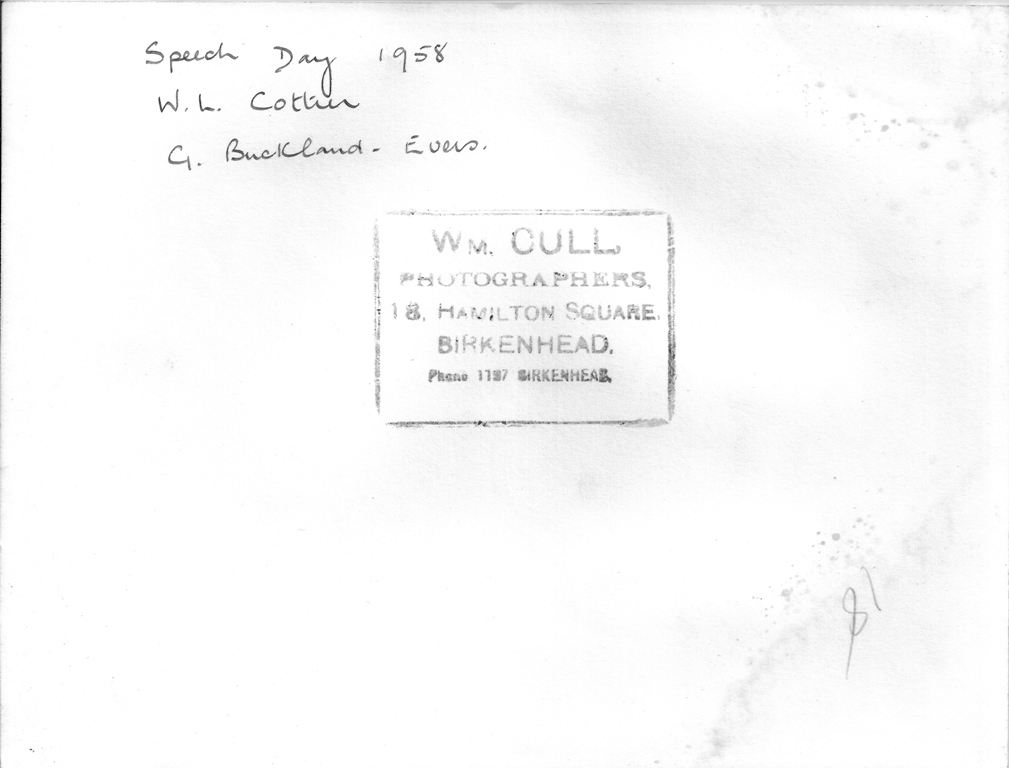 Speech Day 1958
W. L. Cottier
G. Buckland - Evers.
WM. CULL,
PHOTOGRAPHERS,
18, HAMILTON SQUARE,
BIRKENHEAD.
Phone 1187 BIRKENHEAD.